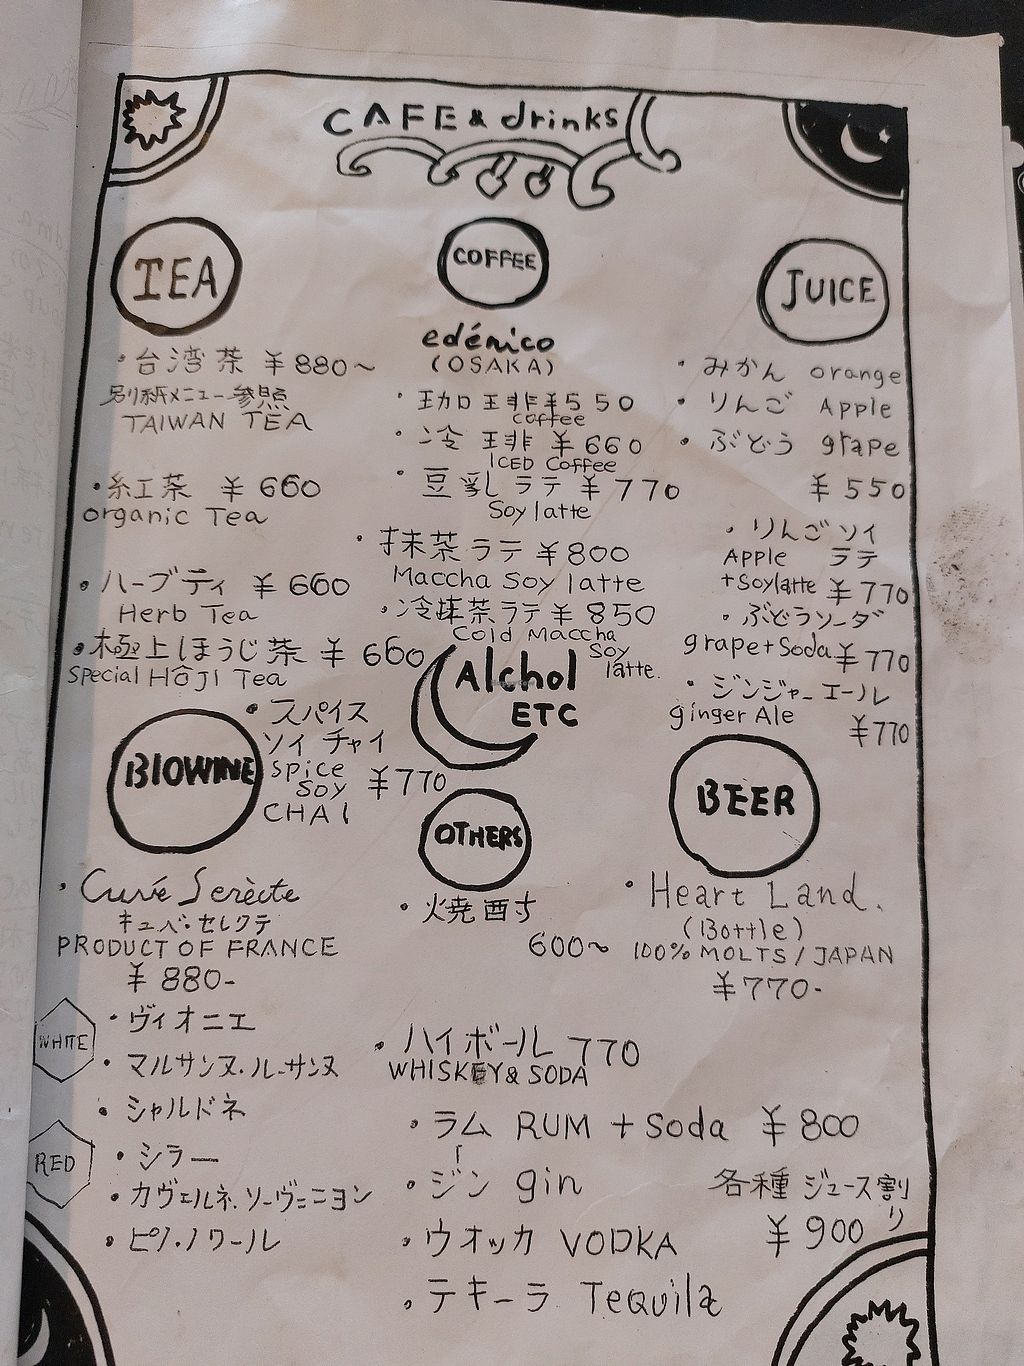 CAFE & drinks
TEA
・台湾茶 ¥880〜
別紙メニュー参照
TAIWAN TEA
・紅茶 ¥660
organic Tea
・ハーブティ ¥660
Herb Tea
・極上ほうじ茶 ¥660
Special HŌJI Tea
・スパイス
ソイ チャイ
spice
SOY ¥770
CHAI
COFFEE
edénico
(OSAKA)
・珈琲 ¥550
coffee
・冷琲 ¥660
ICED Coffee
・豆乳ラテ ¥770
Soy latte
・抹茶ラテ ¥800
Maccha Soy latte
・冷抹茶ラテ ¥850
Cold Maccha
Soy
latte.
JUICE
・みかん orange
・りんご Apple
・ぶどう grape
¥550
・りんごソイ
APPLE ラテ
+Soylatte ¥770
・ぶどうソーダ
grape+Soda ¥770
・ジンジャーエール
ginger Ale
¥770
Alchol
ETC
BIOWINE
・Cuvé Serècte
キュベ・セレクテ
PRODUCT OF FRANCE
¥880-
WHITE
・ヴィオニエ
・マルサンヌ・ルーサンヌ
・シャルドネ
RED
・シラー
・カヴェルネ・ソーヴニヨン
・ピノ・ノワール
OTHERS
・焼酎
600〜
・ハイボール 770
WHISKEY & SODA
・ラム RUM + Soda ¥800
・ジン gin
・ウオッカ VODKA
・テキーラ Tequila
各種 ジュース割り
¥900
BEER
・Heart Land.
(Bottle)
100% MOLTS / JAPAN
¥770-